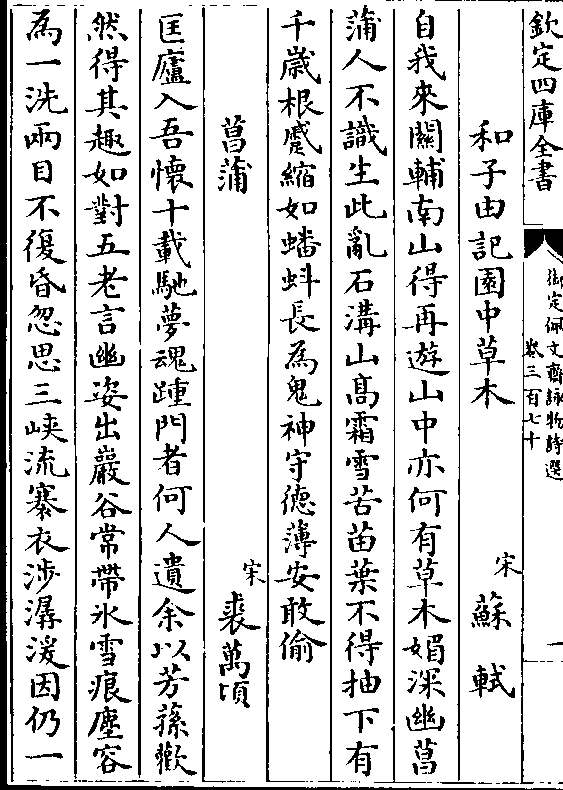 欽定四庫全書
御定佩文齋詠物詩選
卷三百七十
一
和子由記園中草木
宋
蘇軾
自我來關輔南山得再遊山中亦何有草木媚深幽菖
蒲人不識生此亂石溝山髙霜雪苦苗葉不得抽下有
千歳根蹙縮如蟠蚪長為鬼神守德薄安敢偷
菖蒲
宋
裘萬頃
匡廬入吾懷十載馳夢魂踵門者何人遺余以芳蓀歡
然得其趣如對五老言幽姿出巖谷常帶氷雪痕塵容
為一洗兩目不復昏忽思三峽流褰衣涉潺湲因仍一